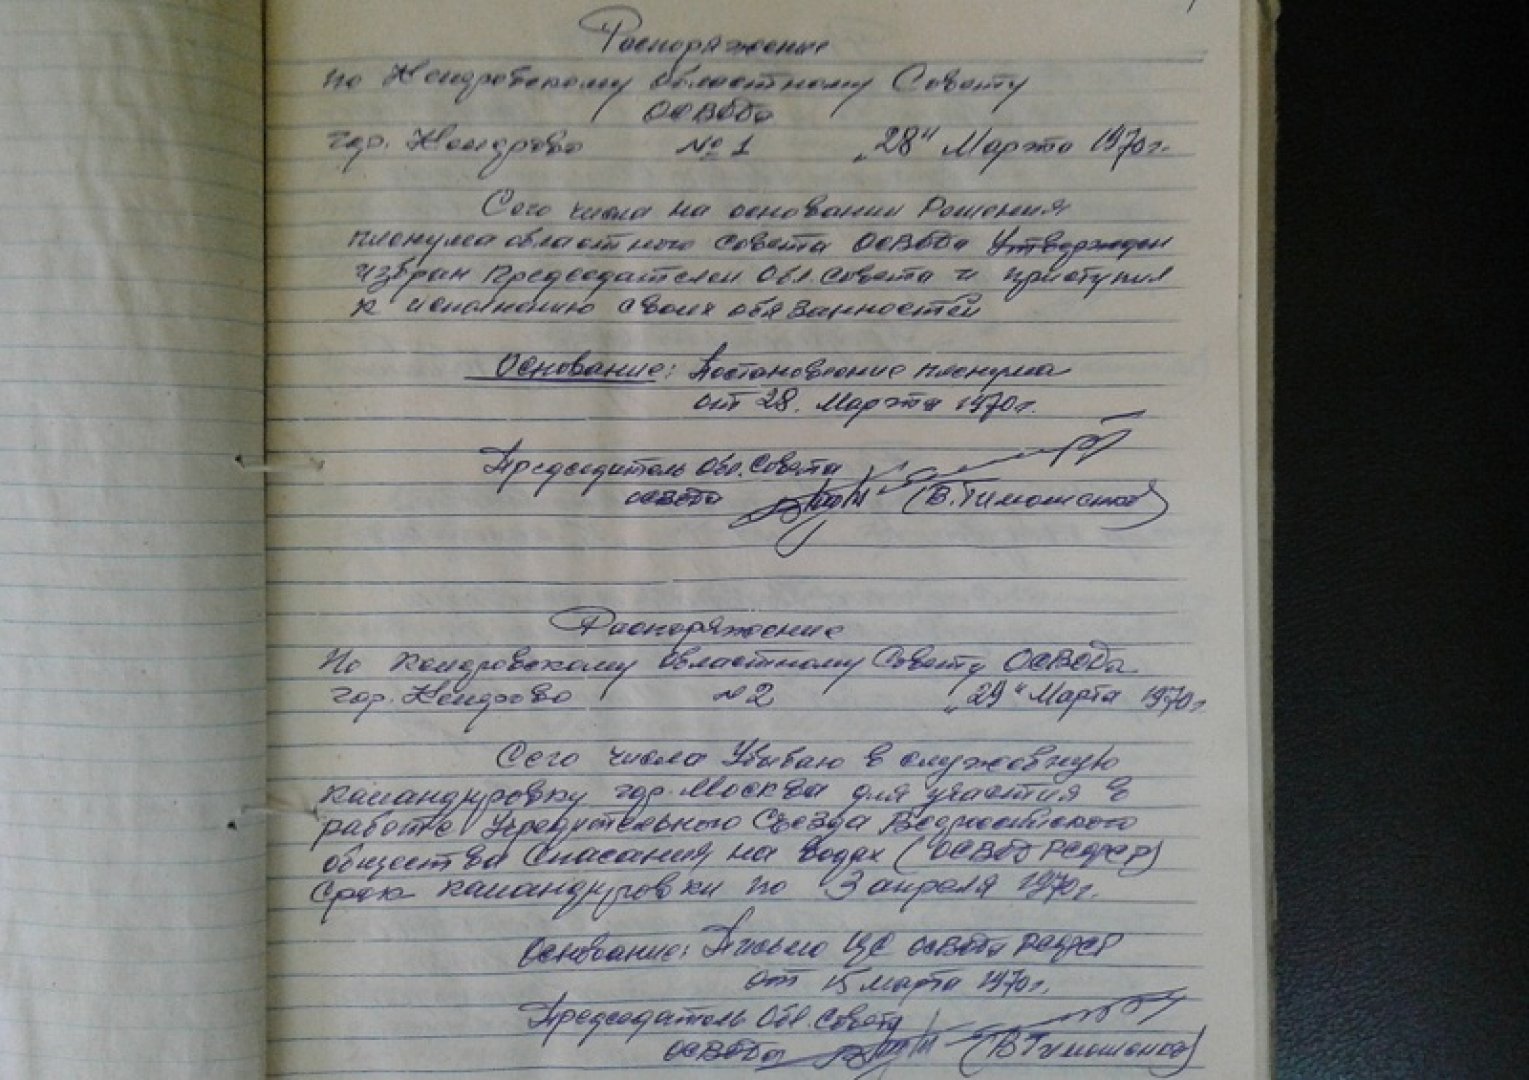 Распоряжение
по Кемеровскому областному Совету
ОСВОДа
гор. Кемерово № 1 „28" Марта 1970 г.
Сего числа на основании Решения
пленума областного совета ОСВОДа Утвержден
избран председателем Обл. совета и приступил
к исполнению своих обязанностей
Основание: Постановление пленума
от 28. Марта 1970 г.
Председатель Обл. Совета
ОСВОДа (В. Тимошенков)
Распоряжение
По Кемеровскому областному Совету ОСВОДа
гор. Кемерово № 2 „29" Марта 1970 г.
Сего числа Убываю в служебную
командировку гор. Москва для участия в
работе Учредительного Съезда Всероссийского
общества Спасания на водах (ОСВОД РСФСР)
Срок командировки по 3 апреля 1970 г.
Основание: Письмо ЦС ОСВОДа РСФСР
от 15 марта 1970 г.
Председатель Обл. Совета
ОСВОДа (В Тимошенков)